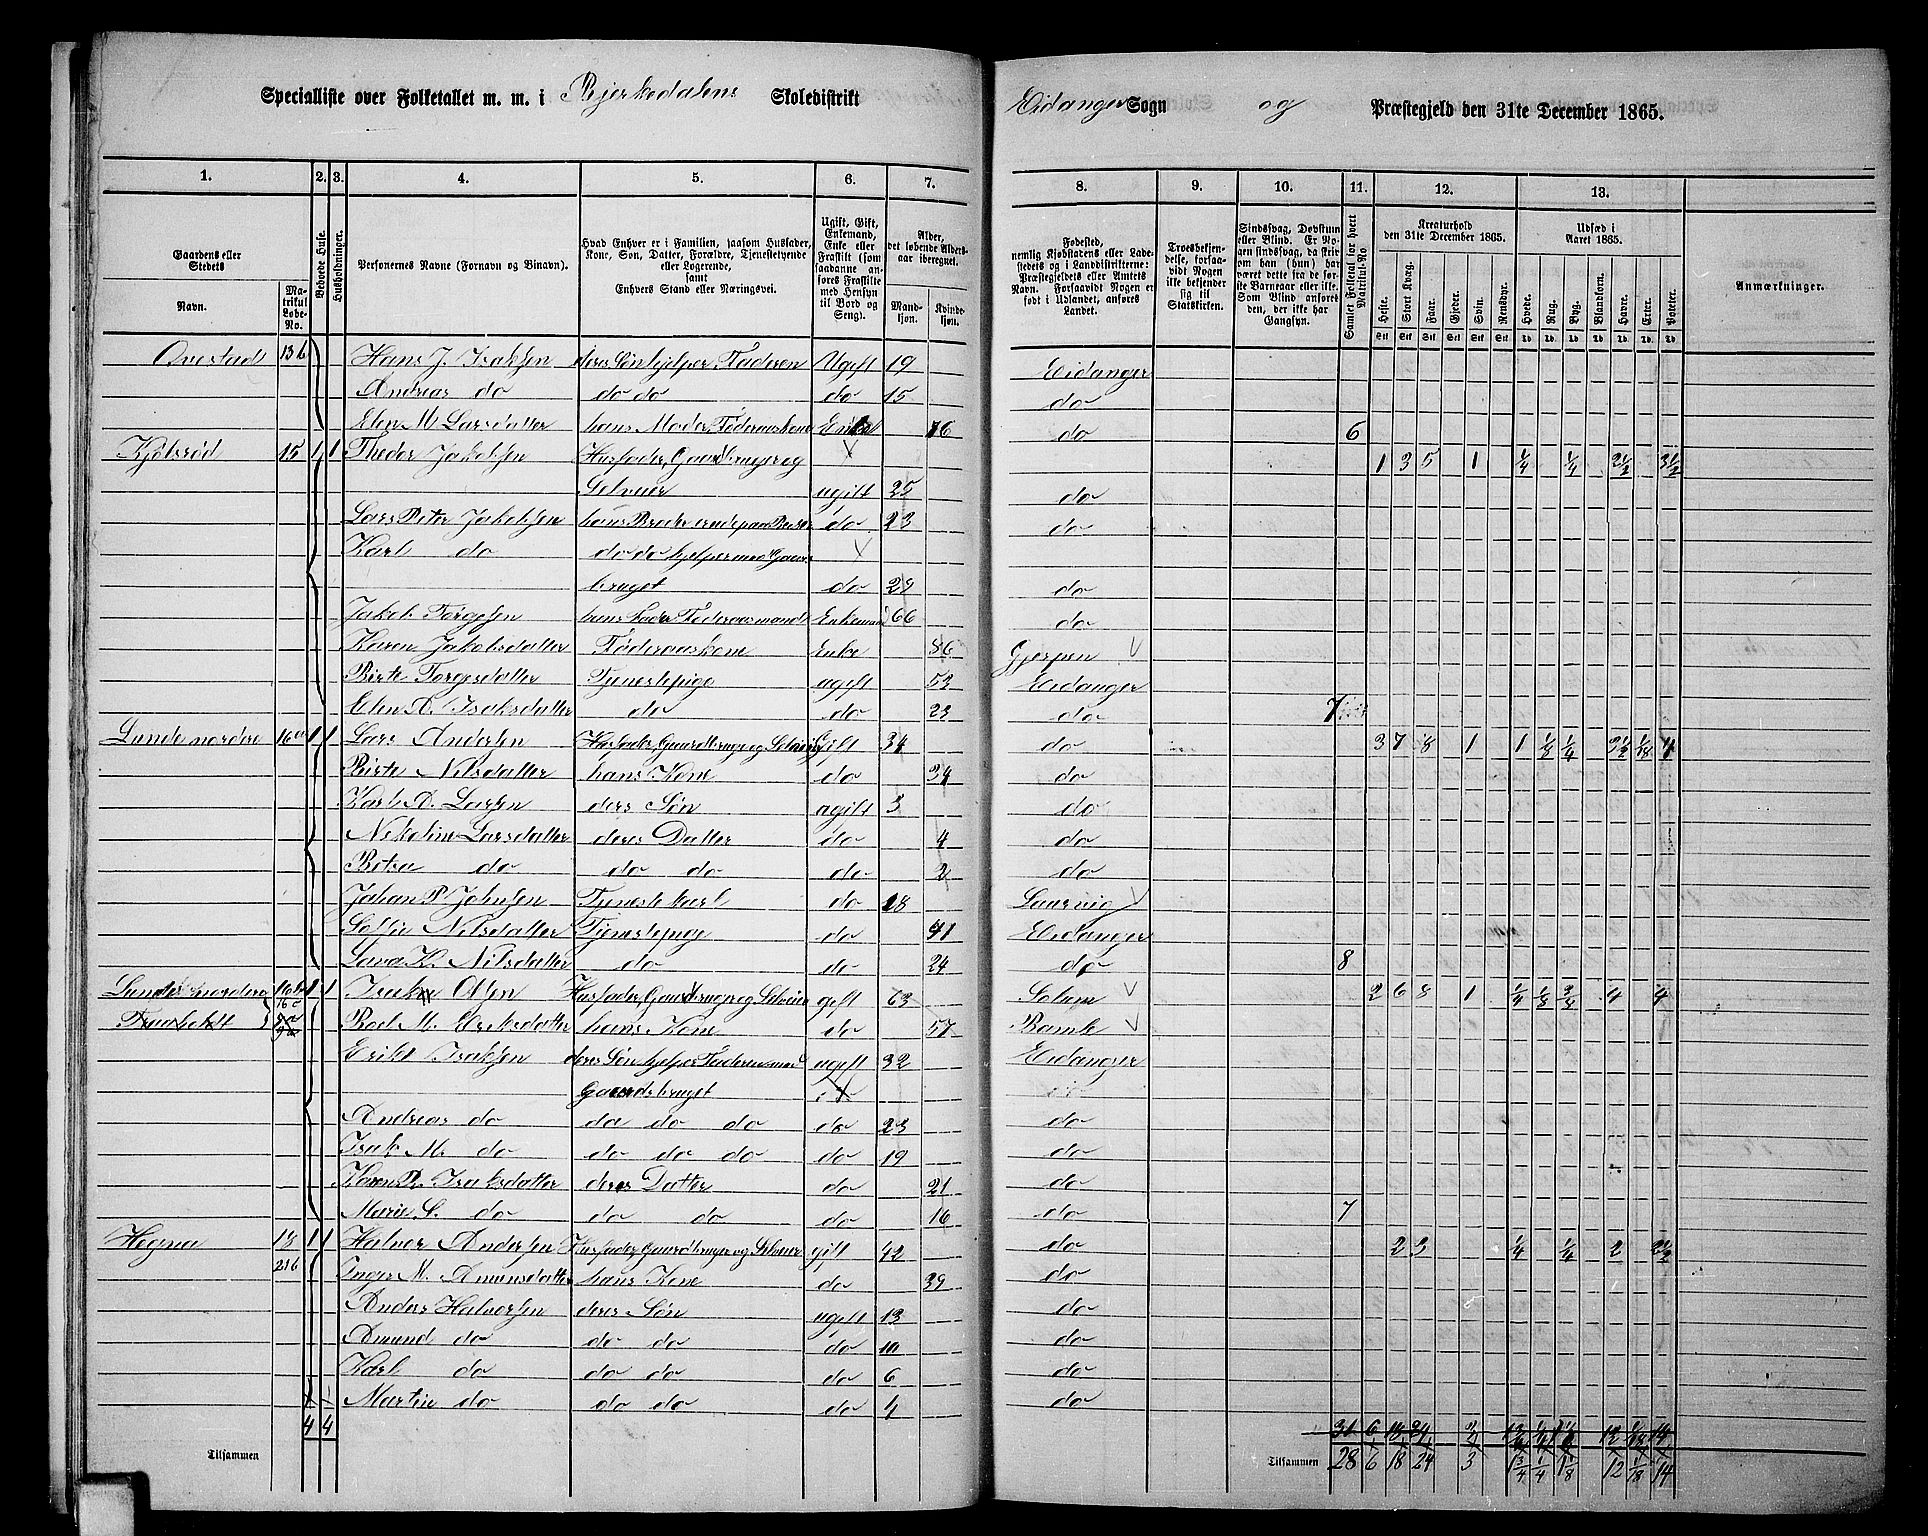 Specialliste over Folketallet m. m. i Bjerkedalens Skoledistrikt
Eidanger Sogn og Præstegjeld den 31te December 1865.
1. 2. 3. 4. 5. 6. 7. 8. 9. 10. 11. 12. 13.
Gaardens eller Stedets
Navn.
Matrikul Løbe-No.
Beboede Huse.
Husholdninger.
Personernes Navne (Fornavn og Binavn).
Hvad Enhver er i Familien, saasom Husfader, Kone, Søn, Datter, Forældre, Tjenestetyende eller Logerende, samt Enhvers Stand eller Næringsvei.
Ugift, Gift, Enkemand, Enke eller Fraskilt (som saadanne anføres Fraskilte med Hensyn til Bord og Seng).
Alder, det løbende Aldersaar iberegnet.
Mandkjøn.
Kvindekjøn.
Fødested, nemlig Kjøbstadens eller Ladestedets og i Landdistrikterne: Præstegjeldets eller Amtets Navn. Forsaavidt Nogen er født i Udlandet, anføres Landet.
Troesbekjendelse, forsaavidt Nogen ikke bekjender sig til Statskirken.
Sindssvag, Døvstum eller Blind. Er Nogen sindssvag, da skrives om han (hun) har været dette fra de første Barneaar eller ikke. Som Blind anføres den, der ikke har Gangsyn.
Samlet Folketal for hvert Matrikul-No
Kreaturhold den 31te December 1865.
Heste. Stort Kvæg. Faar. Gjeder. Svin. Rensdyr.
Udsæd i Aaret 1865.
Hvede. Rug. Byg. Blandkorn. Havre. Erter. Poteter.
Anmærkninger.
Ovestad 13b Hans J. Isaksen deres Søn hjelper Faderen Ugift 19 Eidanger
Andreas do do do do 15 do
Elen M. Larsdatter hans Moder, Føderaadskone Enke 76 do 6
Kjølsrød 15 1 1 Thedor Jakobsen Husfader, Gaardbruger og 1 3 5 1 1/4 1/4 2 1/2 3 1/2
Selveier ugift 25 do
Lars Peter Jakobsen hans Broder do 23 do
Karl do do do hjelper med Gaards
bruget do 29 do
Jakob Torgesen hans Fader Føderaadsmand Enkemand 66 do
Karen Jakobsdatter Føderaadskone Enke 86 Gjerpen
Birte Torgesdatter Tjenestepige ugift 53 Eidanger
Elen A. Isaksdatter do do 23 do 7
Lunde nordre 16a 1 1 Lars Andersen Husfader, Gaardbruger og Selveier Gift 34 do 3 7 8 1 1 1/8 1/4 3 1/2 1/18 4
Birte Nilsdatter hans Kone do 34 do
Karl A. Larsen deres Søn ugift 3 do
Nikoline Larsdatter deres Datter do 4 do
Petra do do do do 2 do
Johan P. Johnsen Tjenestekarl do 18 Laurvig
Sofie Nilsdatter Tjenestepige do 41 Eidanger
Lava K. Nilsdatter do do 24 do 8
Lunde nordre 16b 1 1 Isak Olsen Husfader, Gaardbruger og Selveier gift 63 Solum 2 6 8 1 1/4 1/8 3/8 4 4
16c Boel M. Eriksdatter hans Kone do 57 Bamle
Erikt Isaksen deres Søn hjelper Faderen med ugift 32 Eidanger
Gaardsbruget
Andreas do do do do do 23 do
Isak M. do do do do do 19 do
Karen P. Isaksdatter deres Datter do 21 do
Maria S. do do do do 16 do 7
Hegna 18 1 1 Halvor Andersen Husfader, Gaardbruger og Selveier gift 42 do 2 3 1/4 1/4 2 2 1/2
216 Inger M. Amunsdatter hans Kone do 39 do
Anders Halvorsen deres Søn ugift 13 do
Amund do do do do 10 do
Karl do do do do 6 do
Martin do do do do 4 do
4 4
Tilsammen
31 6 18 24
Tilsammen 28 6 18 24 3 1 3/4 1/4 1 1/8 12 1/18 14